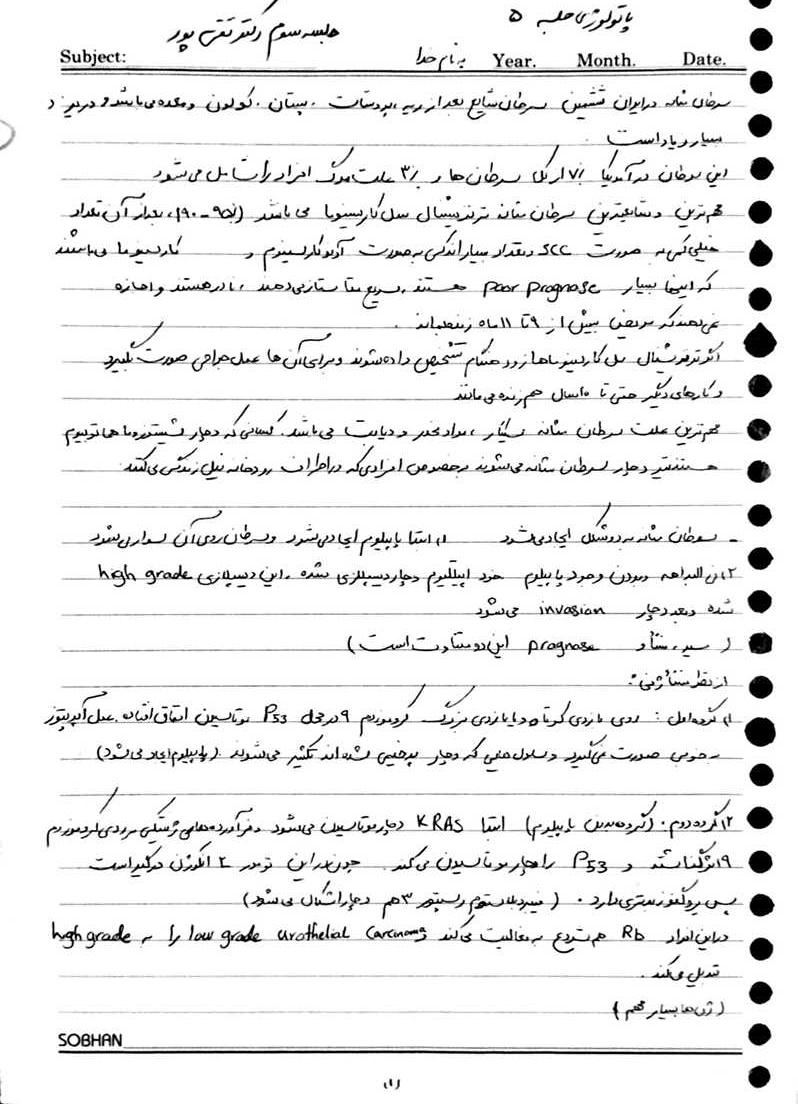 پاتولوژی جلسه ۵
جلسه سوم دکتر تقی پور
Subject: به نام خدا Year. Month. Date.
سرطان مثانه در ایران ششمین سرطان شایع بعد از ریه، پروستات، پستان، کولون و معده می باشد و در یزد
بسیار زیاد است.
این سرطان در آمریکا ۷٪ از کل سرطان ها و ۳٪ علت مرگ افراد را شامل می شود
مهم ترین و شایعترین سرطان مثانه ترنزیشنال سل کارسینوما می باشد (۹۵-۹۰٪)، بعد از آن تعداد
خیلی کمی به صورت SCC و تعداد بسیار اندکی به صورت آدنوکارسینوم و کارسینوما می باشند
که اینها بسیار poor prognose هستند، سریع متاستاز می دهند، نادر هستند و اجازه
نمی دهند که مریض بیش از ۹ تا ۱۱ ماه زنده بماند.
اگر ترنزیشنال سل کارسینوماها زود هنگام تشخیص داده شوند و برای آن ها عمل جراحی صورت بگیرد
و کارهای دیگر حتی تا ۱۰ سال هم زنده می مانند
مهم ترین علت سرطان مثانه سیگار، مواد مخدر و دیابت می باشد. کسانی که دچار شیستوزوما هماتوبیوم
هستند نیز دچار سرطان مثانه می شوند بخصوص افرادی که در اطراف رودخانه نیل زندگی می کنند
- سرطان مثانه به دو شکل ایجاد می شود ۱) ابتدا پاپیلوم ایجاد می شود و سرطان روی آن سوار می شود
۲) فی البداهه و بدون وجود پاپیلوم خود اپیتلیوم دچار دیسپلازی شده، این دیسپلازی high grade
شده و بعد دچار invasion می شود
( سیر، منشأ و prognose این دو متفاوت است )
از نظر منشأ ژنی:
۱) گروه اول: روی بازوی کوتاه و یا بازوی بزرگ کروموزوم ۹ در محل P53 موتاسیون اتفاق افتاده. عمل آپوپتوز
به خوبی صورت نمی گیرد و سلول هایی که دچار بدخیمی شده اند تکثیر می شوند (پاپیلوم ایجاد می شود)
۲) گروه دوم: (گروه بدون پاپیلوم) ابتدا KRAS دچار موتاسیون می شود و فرآورده های ژنتیکی بر روی کروموزوم
۹ اثر گذاشته و P53 را دچار موتاسیون می کند. چون در این تومور ۲ انکوژن درگیر است
پس پروگنوز بدتری دارد. ( فیبروبلاستوم رسپتور ۳ هم دچار اشکال می شود)
در این افراد Rb هم شروع به فعالیت می کند و low grade urothelial carcinoma را به high grade
تبدیل می کند.
(ژن ها بسیار مهم)
SOBHAN
(۱)